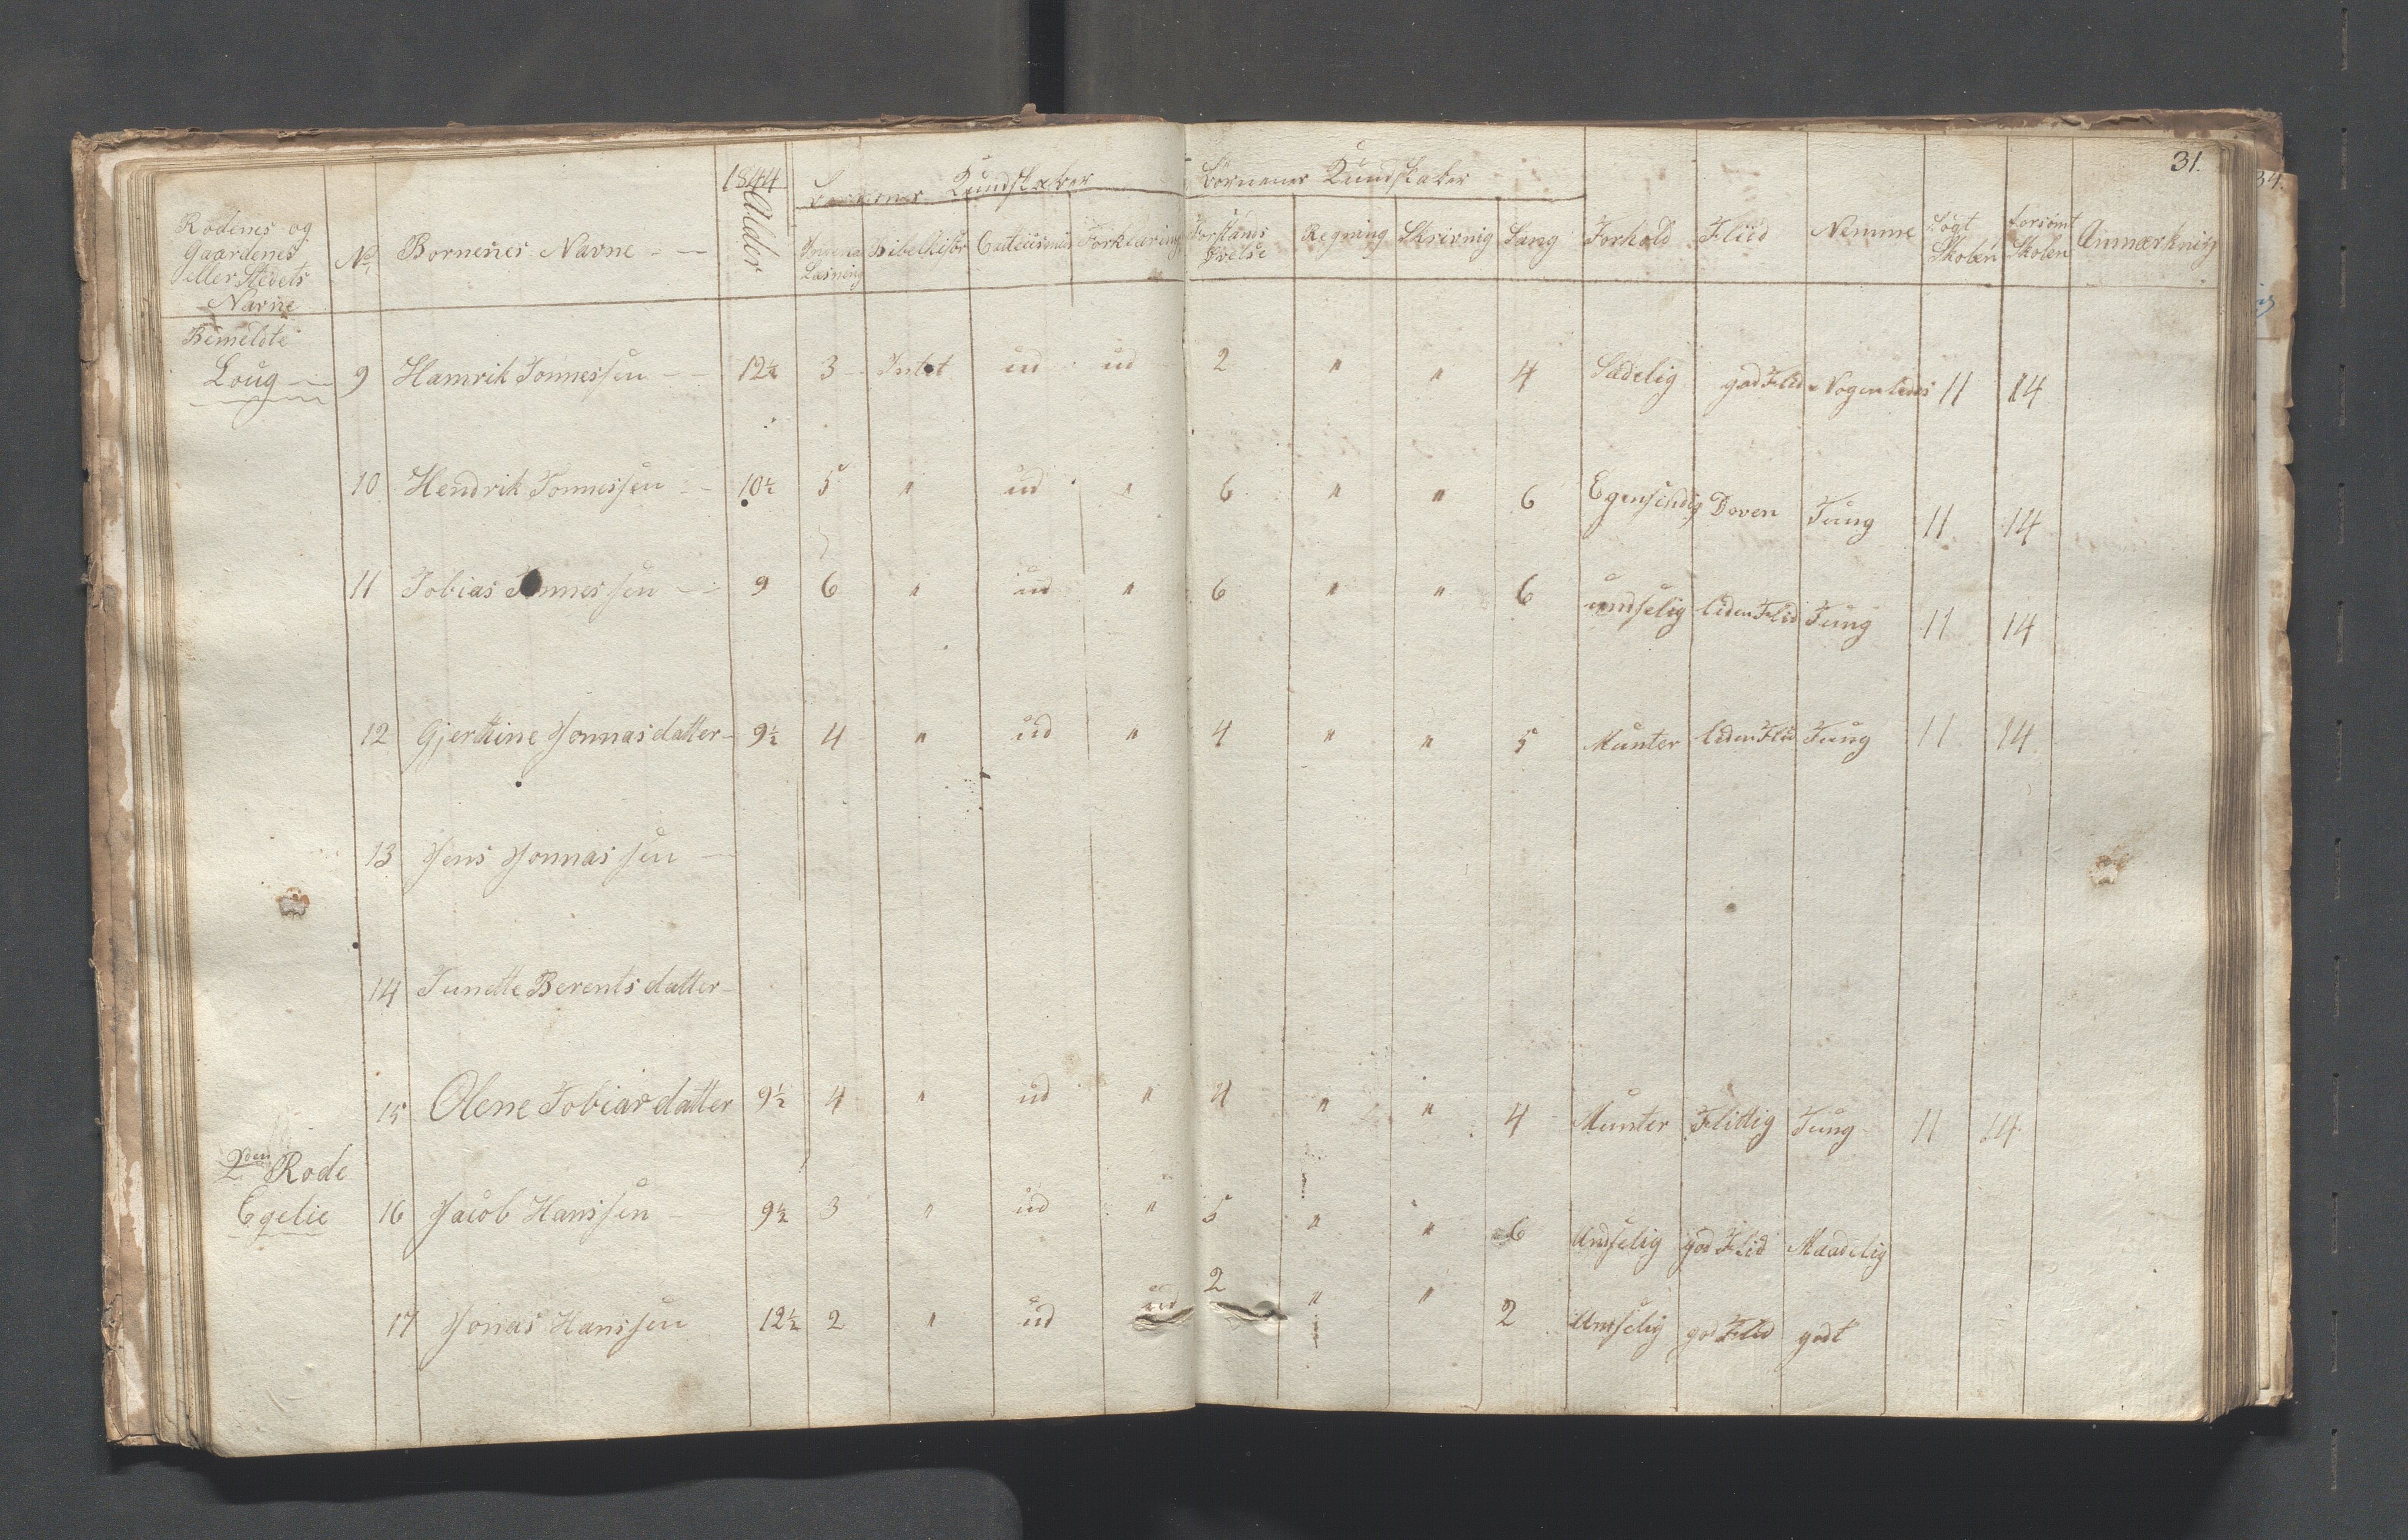 31.
1844
Børnenes Kundskaber Børnenes Kundskaber
Rodenes og Gaardenes eller Stedets Navne No Bornenes Navne Alder Læsning Bibelhistr Cateciismus Forklaring Forstands Øvelse Regning Skrivnig Sang Forhold Fliid Nemme Søgt Skolen Forsømt Skolen Anmærknig
Bemeldte
Loug 9 Hamrik Tonnessen 12½ 3 Intet ud ud 2 " " 4 Sædelig god Flid Nogenledes 11 14
10 Hendrik Tonnessen 10½ 5 " ud " 6 " " 6 Egensindig Doven Tung 11 14
11 Tobias Tonnessen 9 6 " ud " 6 " " 6 undselig liden Flid Tung 11 14
12 Gjerttine Jonnasdatter 9½ 4 " ud " 4 " " 5 Munter liden Flid Tung 11 14
13 Jens Jonnassen
14 Tunette Berentsdatter
15 Olene Tobiasdatter 9½ 4 " ud " 4 " " 4 Munter Flittig Tung 11 14
2den Rode
Egelie 16 Jacob Hanssen 9½ 3 " ud " 5 " " 6 Undselig god Flid Maadelig
17 Jonas Hanssen 12½ 2 " ud ud 2 " " 2 Undselig god Flid godt